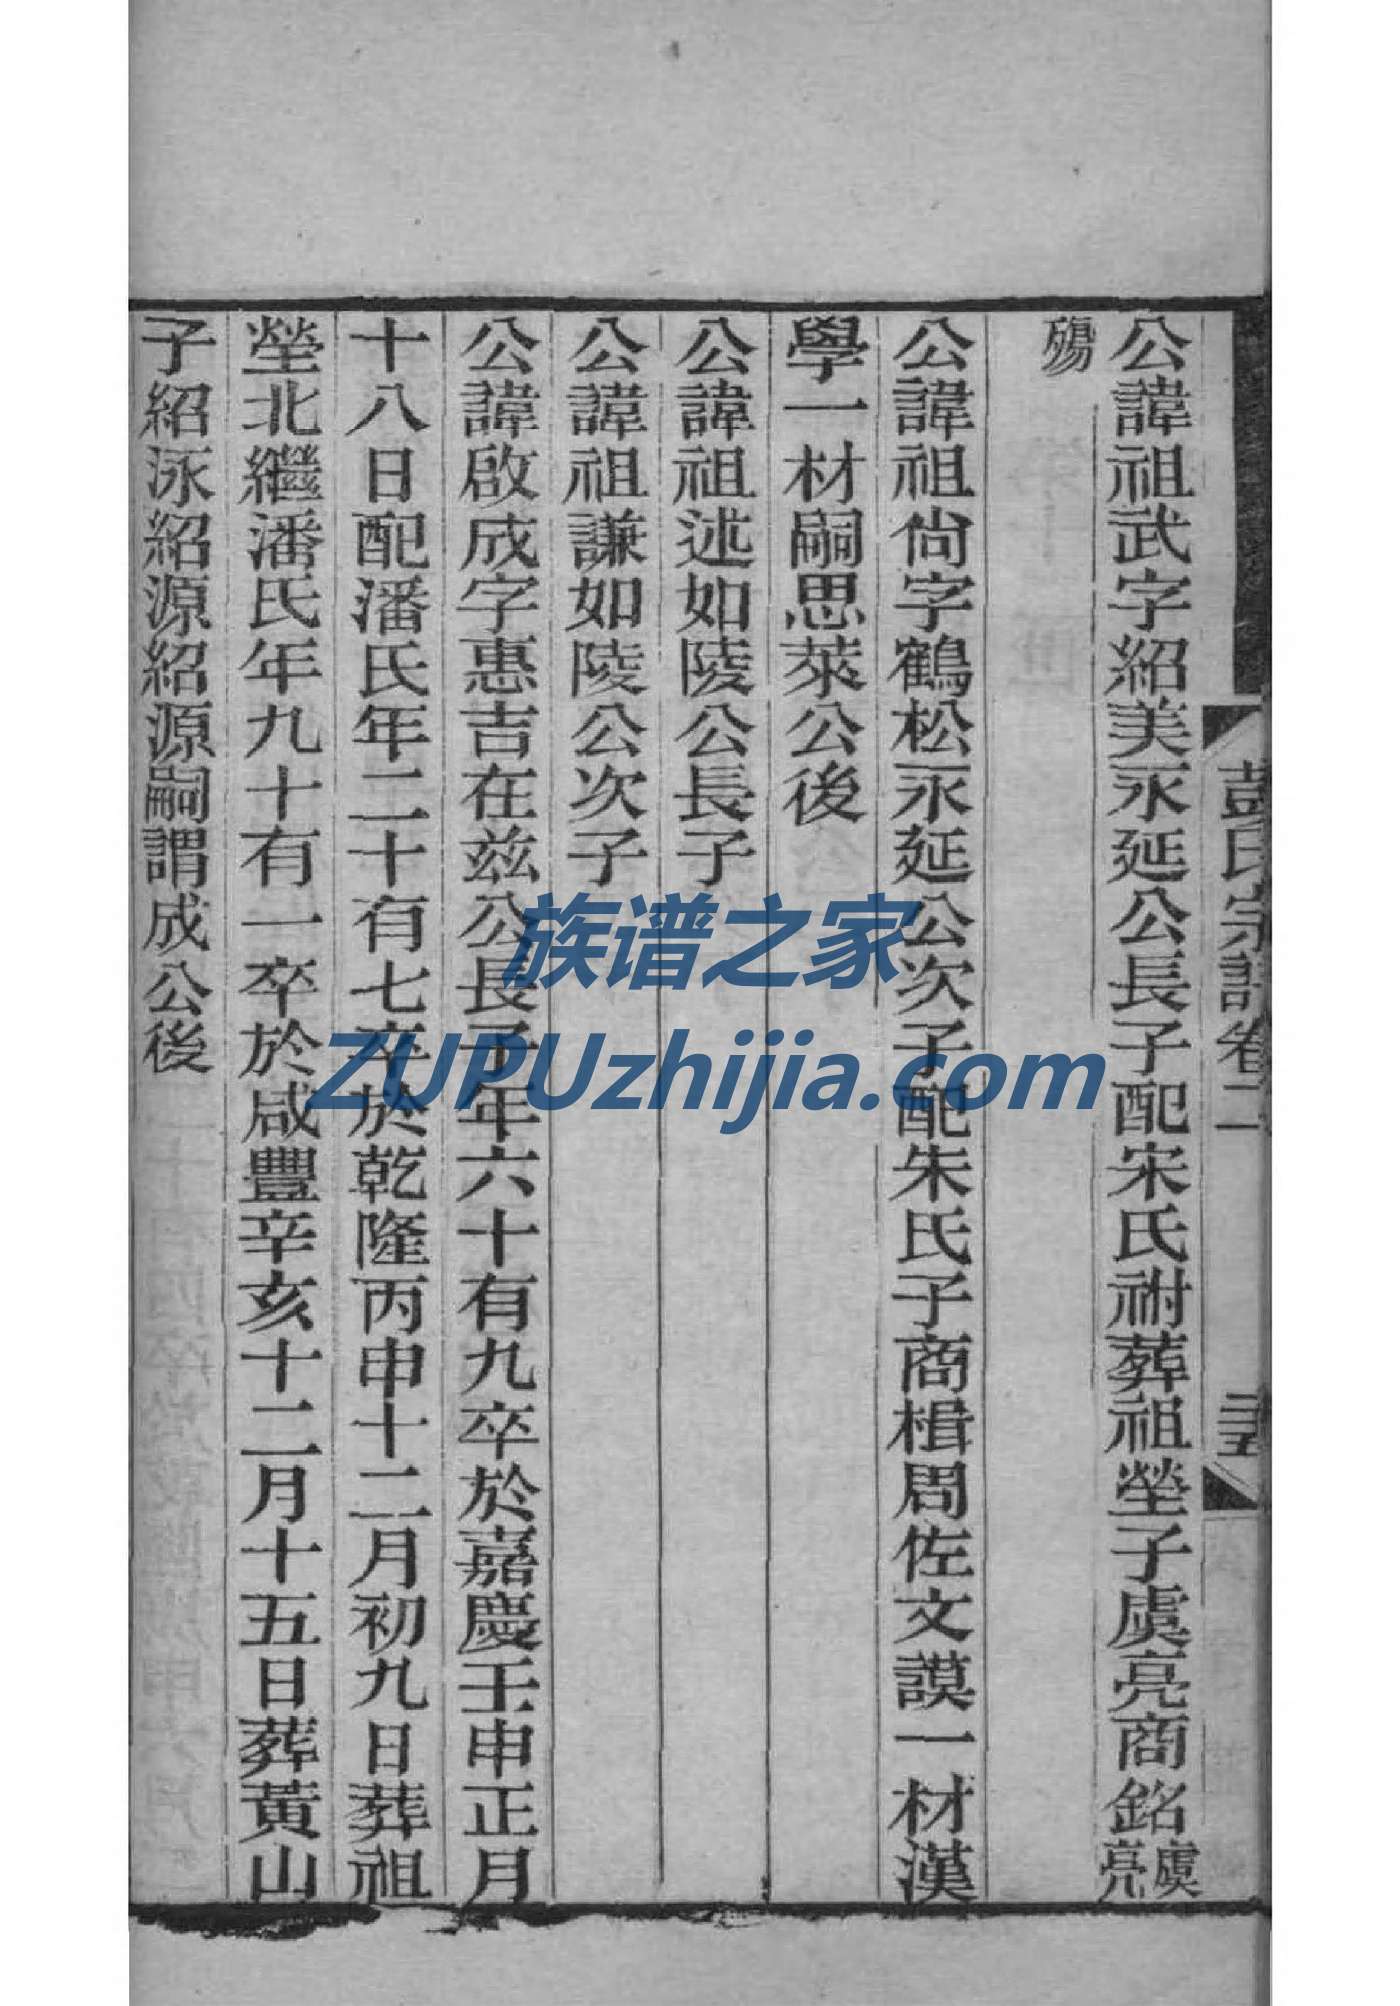 彭氏宗譜卷二
二十五
公諱祖武字紹美永延公長子配宋氏祔葬祖塋子虞亮商銘虞亮
殤
公諱祖尙字鶴松永延公次子配朱氏子商楫周佐文謨一材漢
學一材嗣思萊公後
公諱祖述如陵公長子
公諱祖謙如陵公次子
公諱啟成字惠吉在兹公長子年六十有九卒於嘉慶壬申正月
十八日配潘氏年二十有七卒於乾隆丙申十二月初九日葬祖
塋北繼潘氏年九十有一卒於咸豐辛亥十二月十五日葬黃山
子紹泳紹源紹源嗣謂成公後
族谱之家
ZUPUzhijia.com